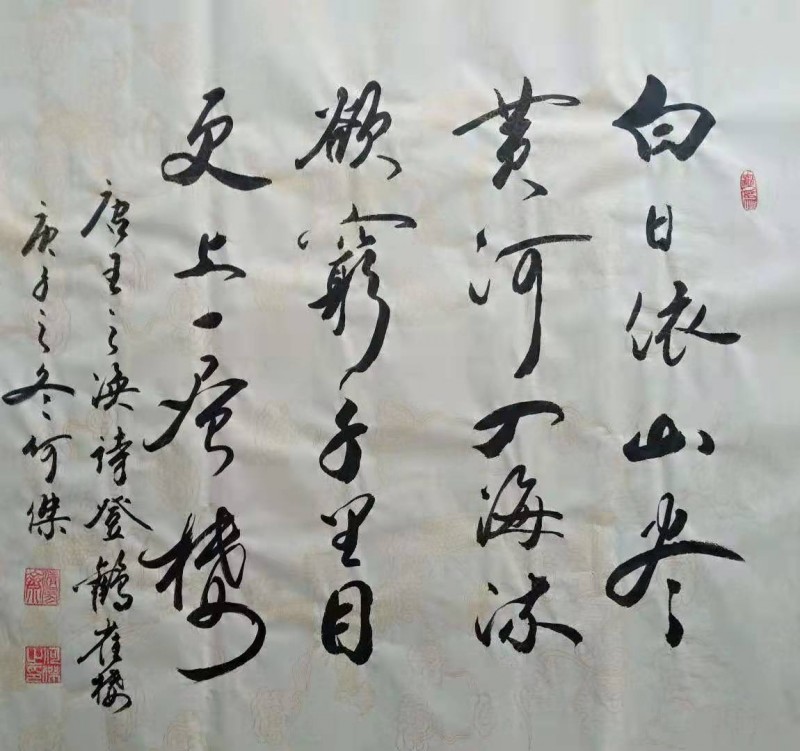 白日依山尽
黄河入海流
欲窮千里目
更上一层楼
唐王之涣詩登鹳雀楼
庚子之冬何傑